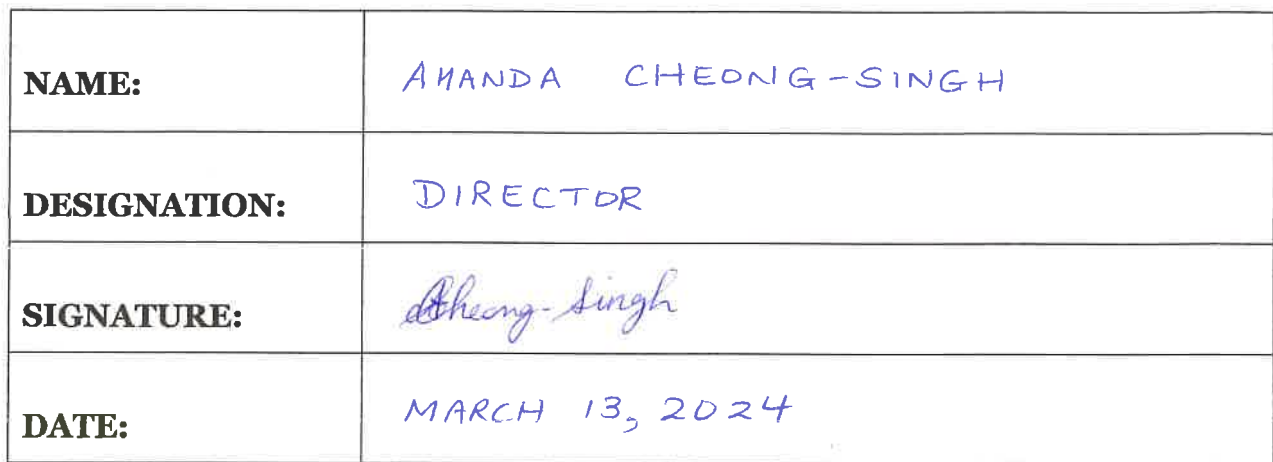 NAME: AMANDA CHEONG-SINGH
DESIGNATION: DIRECTOR
SIGNATURE: ACheong-Singh
DATE: MARCH 13, 2024